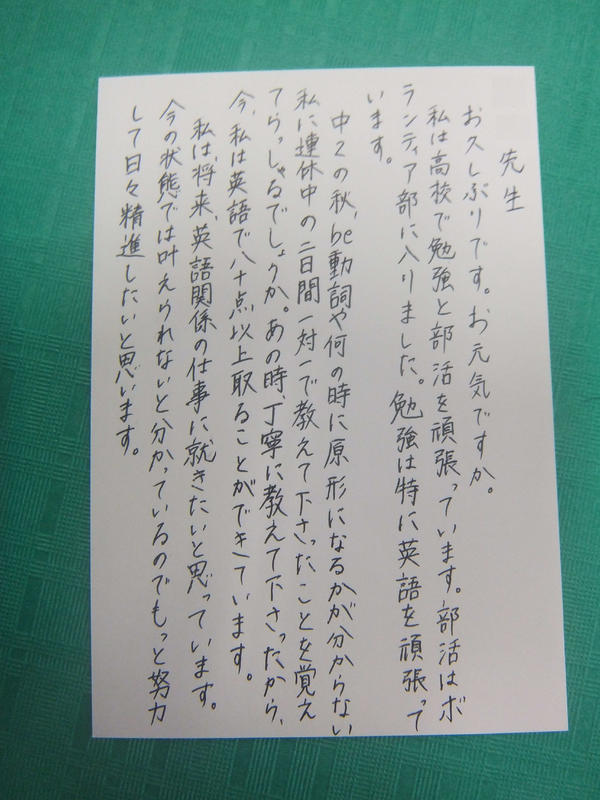 先生
お久しぶりです。お元気ですか。
私は高校で勉強と部活を頑張っています。部活はボ
ランティア部に入りました。勉強は特に英語を頑張って
います。
中2の秋、be動詞や何の時に原形になるかが分からない
私に連休中の二日間一対一で教えて下さったことを覚え
てらっしゃるでしょうか。あの時、丁寧に教えて下さったから、
今、私は英語で八十点以上取ることができています。
私は、将来、英語関係の仕事に就きたいと思っています。
今の状態では叶えられないと分かっているのでもっと努力
して日々精進したいと思います。